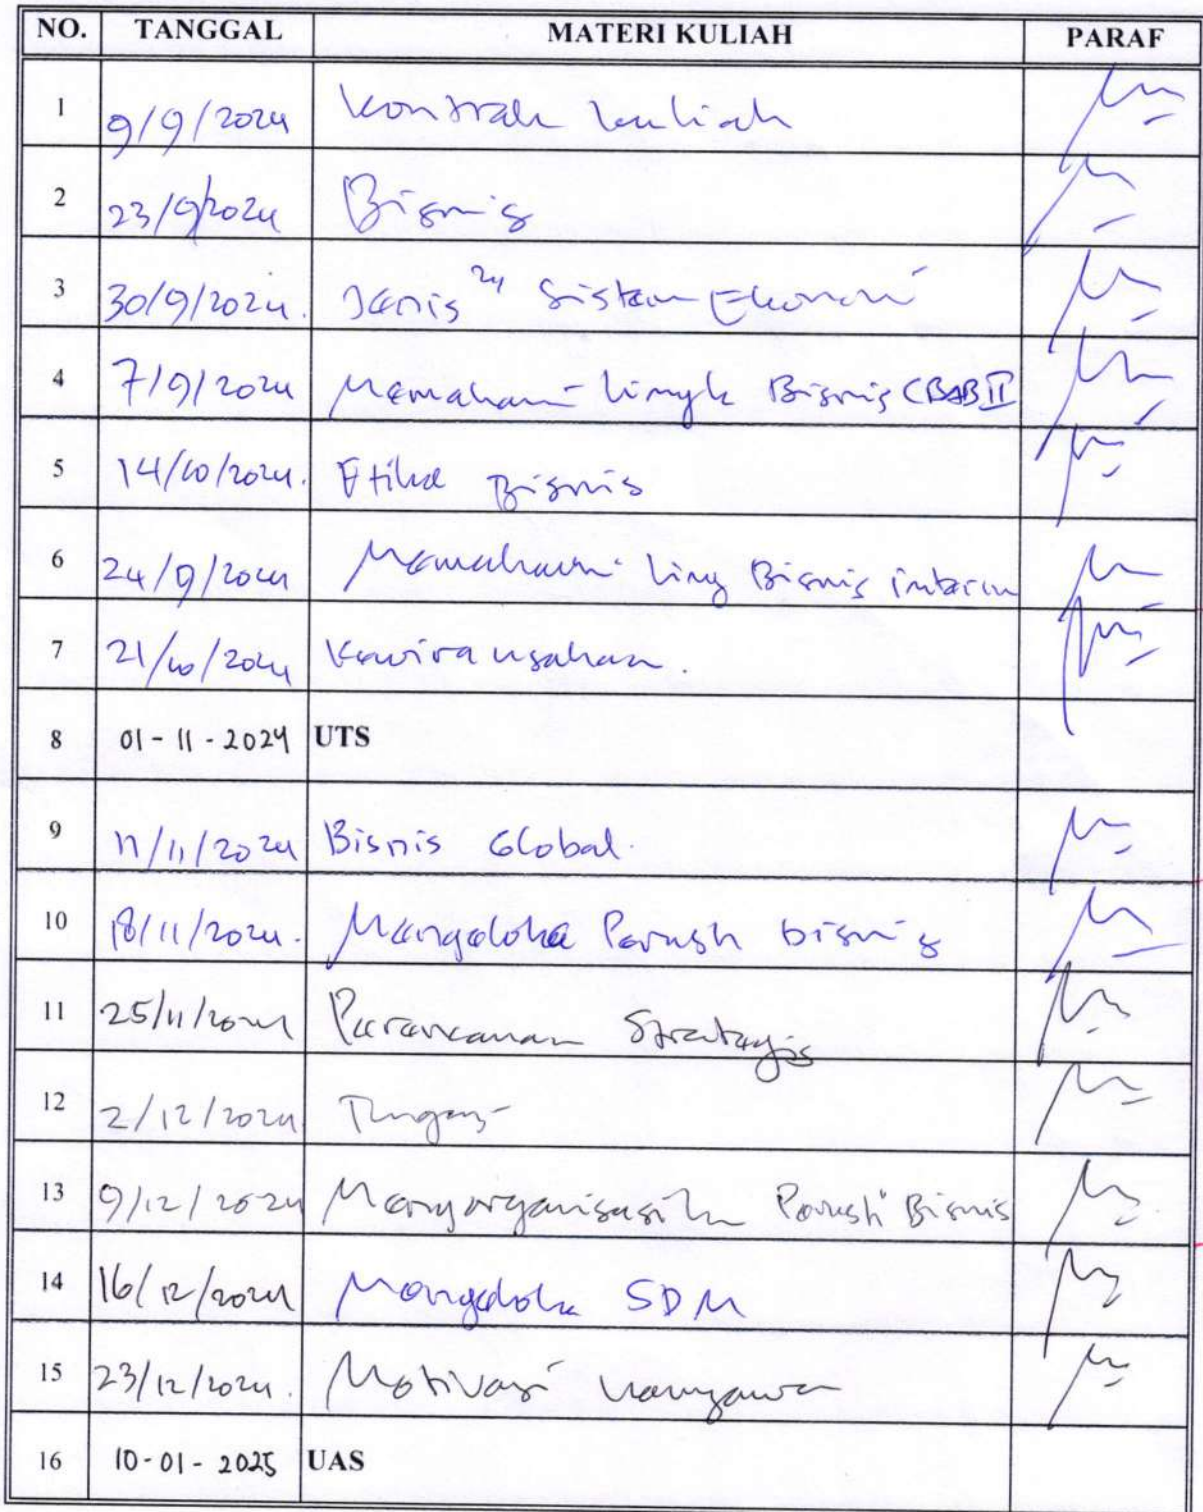 NO. TANGGAL MATERI KULIAH PARAF
1 9/9/2024 Kontrak kuliah
2 23/9/2024 Bisnis
3 30/9/2024. Jenis 24 Sistem Ekonomi
4 7/9/2024 Memahami lingk Bisnis (BAB II
5 14/10/2024. Etika Bisnis
6 24/9/2024 Memahami ling Bisnis intern
7 21/10/2024 Kewirausahaan.
8 01-11-2024 UTS
9 11/11/2024 Bisnis Global.
10 18/11/2024. Mengelola Perush bisnis
11 25/11/2024 Perencanaan Strategis
12 2/12/2024 Tugas
13 9/12/2024 Mengorganisasik Perush Bisnis
14 16/12/2024 Mengelola SDM
15 23/12/2024. Motivasi karyawan
16 10-01-2025 UAS